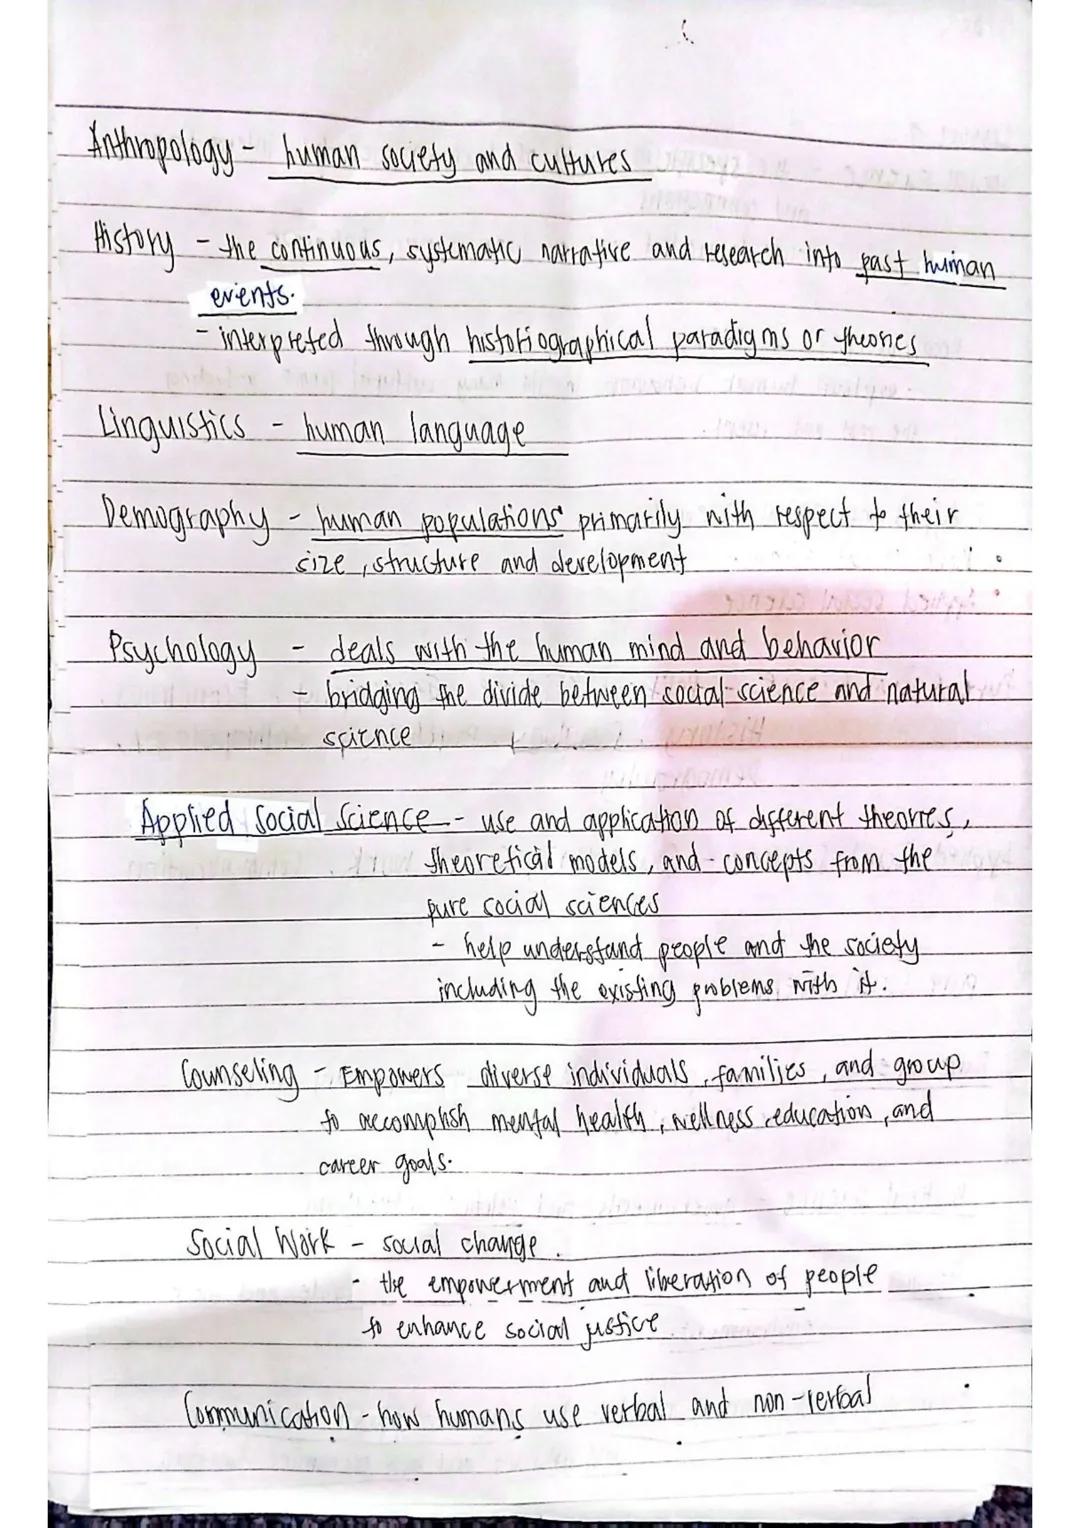 Anthropology - human society and cultures
History - the continuous, systematic narrative and research into past human
events.
- interpreted through historiographical paradigms or theories
Linguistics - human language
Demography - human populations primarily with respect to their
size, structure and development
Psychology - deals with the human mind and behavior
- bridging the divide between social science and natural
science
Applied Social Science - use and application of different theories,
theoretical models, and concepts from the
pure social sciences
- help understand people and the society
including the existing problems with it.
Counseling - Empowers diverse individuals, families, and group
to accomplish mental health, wellness, education, and
career goals.
Social Work - social change.
- the empowerment and liberation of people
to enhance social justice.
Communication - how humans use verbal and non-verbal